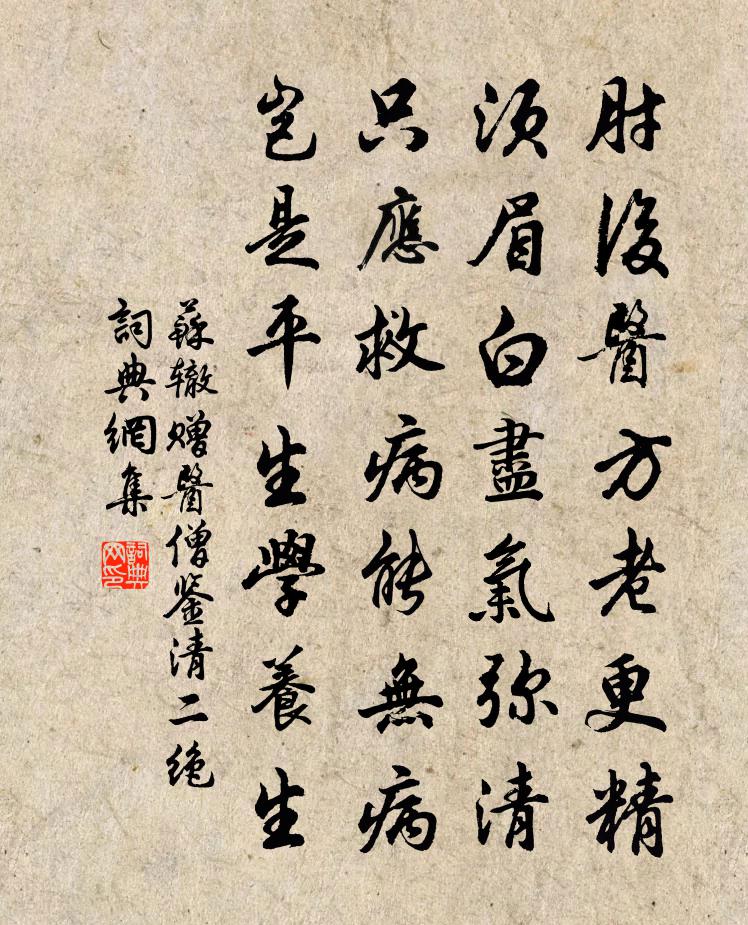 肘後醫方老更精
須眉白盡氣彌清
只應救病能無病
豈是平生學養生
蘇轍贈醫僧鉴清二絶
詞典網集
詞典网印